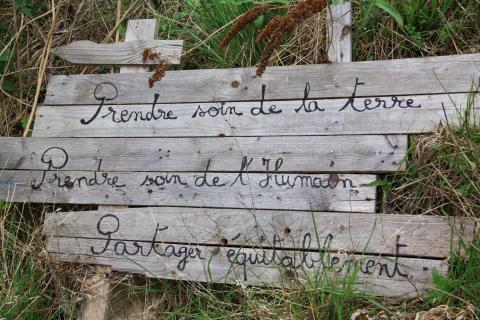 Prendre soin de la terre
Prendre soin de l'Humain
Partager équitablement